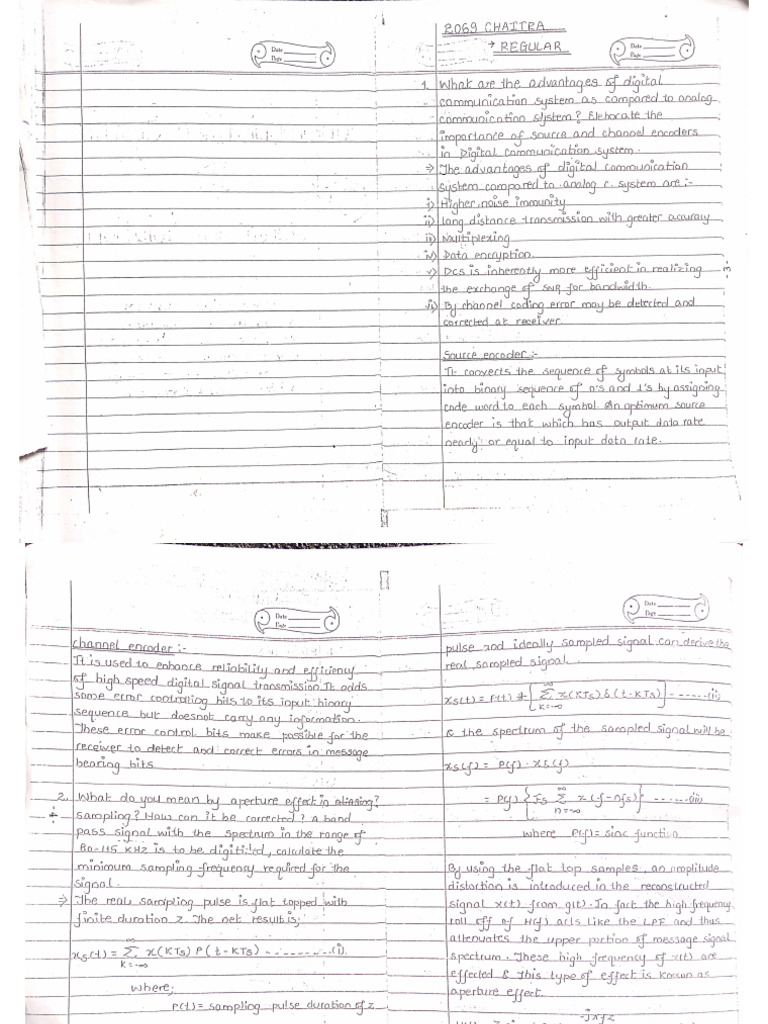 Date
Page
2069 CHAITRA
→ REGULAR
Date
Page
1. What are the advantages of digital
communication system as compared to analog
communication system? Eleborate the
importance of source and channel encoders
in Digital communication system.
→ The advantages of digital communication
system compared to analog c. system are:-
i) Higher noise immunity
ii) Long distance transmission with greater accuracy
iii) Multiplexing
iv) Data encryption.
v) DCS is inherently more efficient in realizing
the exchange of SNR for bandwidth.
vi) By channel coding error may be detected and
corrected at receiver.
Source encoder:-
It converts the sequence of symbols at its input
into binary sequence of 0's and 1's by assigning
code word to each symbol. An optimum source
encoder is that which has output data rate
nearly or equal to input data rate.
Date
Page
channel encoder:-
It is used to enhance reliability and efficiency
of high speed digital signal transmission. It adds
some error controlling bits to its input binary
sequence but doesnot carry any information.
These error control bits make possible for the
receiver to detect and correct errors in message
bearing bits.
2. What do you mean by aperture effect in aliasing?
sampling? How can it be corrected? A band
pass signal with the spectrum in the range of
80-115 KHz is to be digitized, calculate the
minimum sampling frequency required for the
signal.
⇒ The real sampling pulse is flat topped with
finite duration z. The net result is;
xs(t) = ∞Σk=-∞ x(KTs) P(t-KTs) ---------(i).
where;
P(t) = sampling pulse duration of z
Date
Page
pulse and ideally sampled signal can derive the
real sampled signal.
xs(t) = P(t) * [∞Σk=-∞ x(KTs) δ(t-KTs)] ------(ii)
& the spectrum of the sampled signal will be
xs(f) = P(f) . xδ(f)
= P(f) {fs ∞Σn=-∞ x(f-nfs)} ------(iii)
where P(f) = sinc function.
By using the flat top samples, an amplitude
distortion is introduced in the reconstructed
signal x(t) from g(t). In fact the high frequency
roll off of H(f) acts like the LPF and thus
attenuates the upper portion of message signal
spectrum. These high frequency of x(t) are
effected & this type of effect is known as
aperture effect.